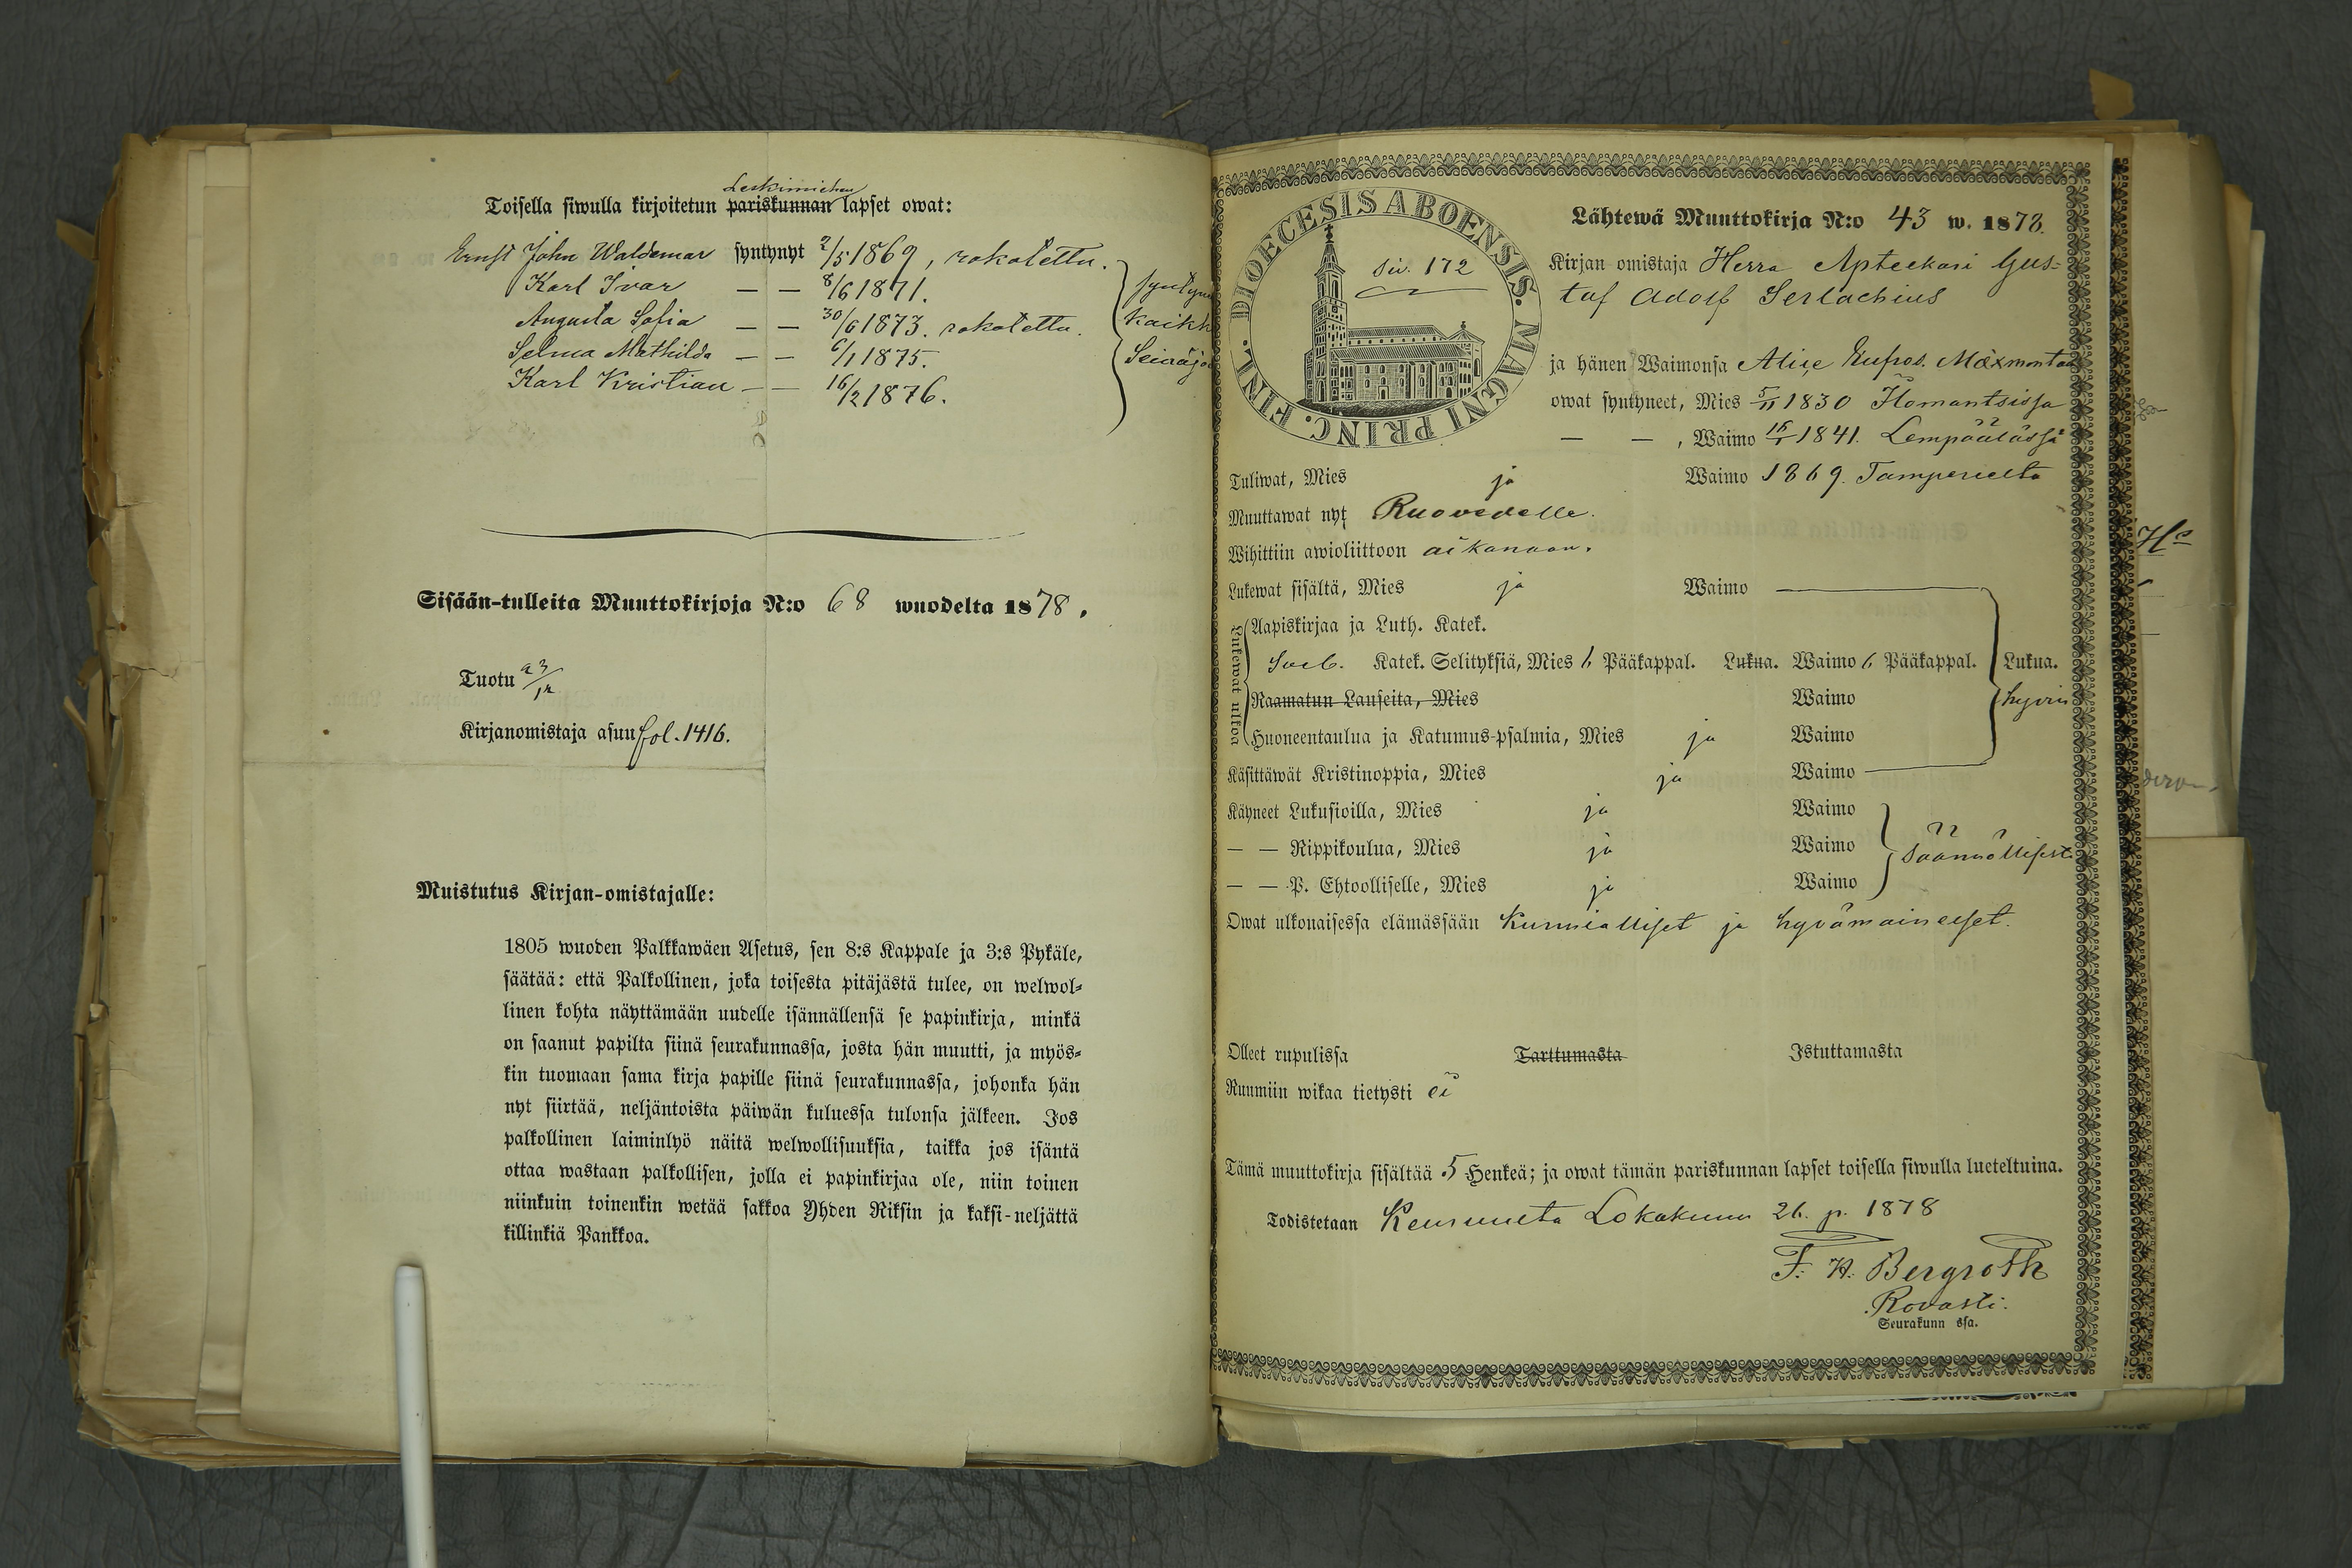 Leskimiehen
Toisella siwulla kirjoitetun pariskunnan lapset owat:
Ernst John Waldemar syntynyt 2/5 1869, rokotettu.
Karl Ivar — — 8/6 1871.
Augusta Sofia — — 30/6 1873. rokotettu.
Selma Mathilda — — 6/1 1875.
Karl Kristian — — 16/2 1876.
Sisään-tulleita Muuttokirjoja N:o 68 wuodelta 1878.
Tuotu 23/12
Kirjanomistaja asuu fol. 1416.
Muistutus Kirjan-omistajalle:
1805 wuoden Palkkawäen Asetus, sen 8:s Kappale ja 3:s Pykäle,
säätää: että Palkollinen, joka toisesta pitäjästä tulee, on welwol-
linen kohta näyttämään uudelle isännällensä se papinkirja, minkä
on saanut papilta siinä seurakunnassa, josta hän muutti, ja myös-
kin tuomaan sama kirja papille siinä seurakunnassa, johonka hän
nyt siirtää, neljäntoista päiwän kuluessa tulonsa jälkeen. Jos
palkollinen laiminlyö näitä welwollisuuksia, taikka jos isäntä
ottaa wastaan palkollisen, jolla ei papinkirjaa ole, niin toinen
niinkuin toinenkin wetää sakkoa Yhden Riksin ja kaksi-neljättä
killinkiä Pankkoa.
DIOECESIS ABOENSIS. MAGNI PRINC. FINL.
Siv. 172
Lähtewä Muuttokirja N:o 43 w. 1878.
Kirjan omistaja Herra Apteekari Gus-
taf Adolf Serlachius
ja hänen Waimonsa Alice Eufros. Maxmontan
owat syntyneet, Mies 5/11 1830 Ilomantsissa
— — , Waimo 1841. Lempäälässä
Tuliwat, Mies ja Waimo 1869. Tampereelta
Muuttawat nyt Ruovedelle.
Wihittiin awioliittoon aikanaan.
Lukewat sisältä, Mies ja Waimo
Lukewat ulkoa
Aapiskirjaa ja Luth. Katek.
Sveb. Katek. Selityksiä, Mies 6 Pääkappal. Lukua. Waimo 6 Pääkappal. Lukua.
Raamatun Lauseita, Mies Waimo hyvin
Huoneentaulua ja Katumus-psalmia, Mies ja Waimo
Käsittäwät Kristinoppia, Mies ja Waimo
Käyneet Lukusioilla, Mies ja Waimo
— — Rippikoulua, Mies ja Waimo säännöllisest.
— — P. Ehtoolliselle, Mies ja Waimo
Owat ulkonaisessa elämässään kunnialliset ja hyvämaineeset.
Olleet rupulissa Tarttumasta Istuttamasta
Ruumiin wikaa tietysti ei
Tämä muuttokirja sisältää 5 Henkeä; ja owat tämän pariskunnan lapset toisella siwulla lueteltuina.
Todistetaan Keuruulta Lokakuun 26. p. 1878
F. H. Bergroth
Rovasti.
Seurakunn ssa.